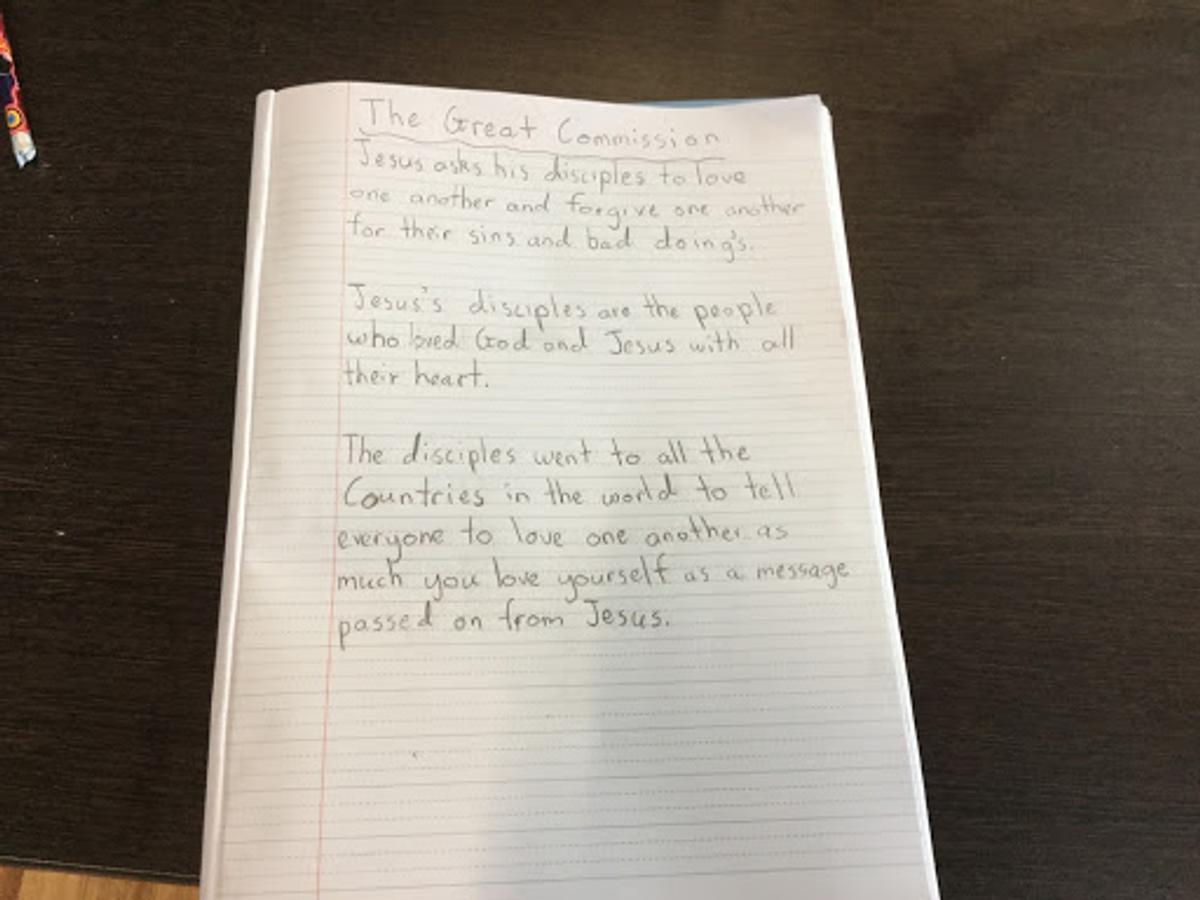 The Great Commission
Jesus asks his disciples to love
one another and forgive one another
for their sins and bad doing's.
Jesus's disciples are the people
who loved God and Jesus with all
their heart.
The disciples went to all the
Countries in the world to tell
everyone to love one another as
much you love yourself as a message
passed on from Jesus.